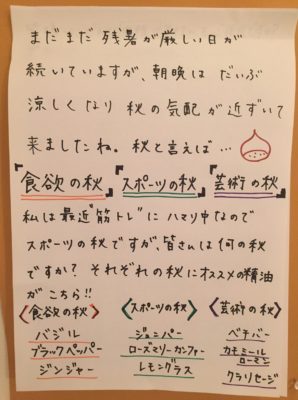 まだまだ残暑が厳しい日が
続いていますが、朝晩は だいぶ
涼しくなり 秋の気配が近ずいて
来ましたね。秋と言えば…
「食欲の秋」「スポーツの秋」「芸術の秋」
私は最近"筋トレ"にハマり中なので
スポーツの秋ですが、皆さんは何の秋
ですか? それぞれの秋にオススメの精油
がこちら!!
〈食欲の秋〉 〈スポーツの秋〉 〈芸術の秋〉
バジル ジュニパー ベチバー
ブラックペッパー ローズマリーカンファー カモミールローマン
ジンジャー レモングラス クラリセージ